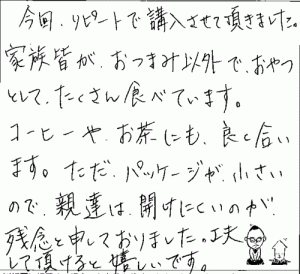 今回、リピートで購入させて頂きました。
家族皆が、おつまみ以外で、おやつ
として、たくさん食べています。
コーヒーや、お茶にも、良く合い
ます。ただ、パッケージが、小さい
ので、親達は、開けにくいのが、
残念と申しておりました。工夫
して頂けると嬉しいです。